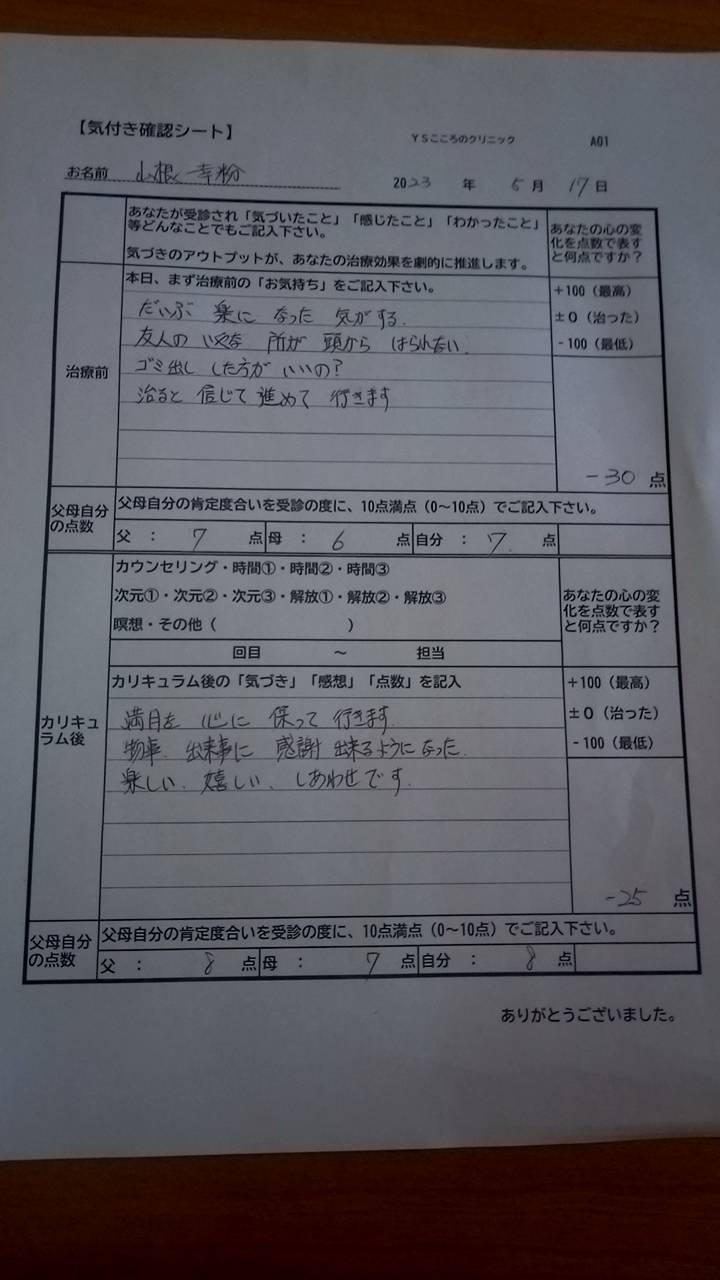 【気付き確認シート】
YSこころのクリニック
A01
お名前 山根幸粉
2023 年 5月 17日
あなたが受診され「気づいたこと」「感じたこと」「わかったこと」
等どんなことでもご記入下さい。
気づきのアウトプットが、あなたの治療効果を劇的に推進します。
あなたの心の変
化を点数で表す
と何点ですか?
治療前
本日、まず治療前の「お気持ち」をご記入下さい。
だいぶ 楽に なった 気がする.
友人の いやな 所が 頭から はられない.
ゴミ出し した方が いいの?
治ると 信じて 進めて 行きます
+100(最高)
±0(治った)
-100(最低)
-30 点
父母自分
の点数
父母自分の肯定度合いを受診の度に、10点満点(0~10点)でご記入下さい。
父 : 7 点 母 : 6 点 自分 : 7. 点
カリキュ
ラム後
カウンセリング・時間①・時間②・時間③
次元①・次元②・次元③・解放①・解放②・解放③
瞑想・その他( )
回目 ~ 担当
あなたの心の変
化を点数で表す
と何点ですか?
カリキュラム後の「気づき」「感想」「点数」を記入
満月を 心に 保って 行きます.
物事. 出来事に 感謝 出来るようになった.
楽しい. 嬉しい. しあわせです.
+100(最高)
±0(治った)
-100(最低)
-25 点
父母自分
の点数
父母自分の肯定度合いを受診の度に、10点満点(0~10点)でご記入下さい。
父 : 8 点 母 : 7 点 自分 : 8 点
ありがとうございました。